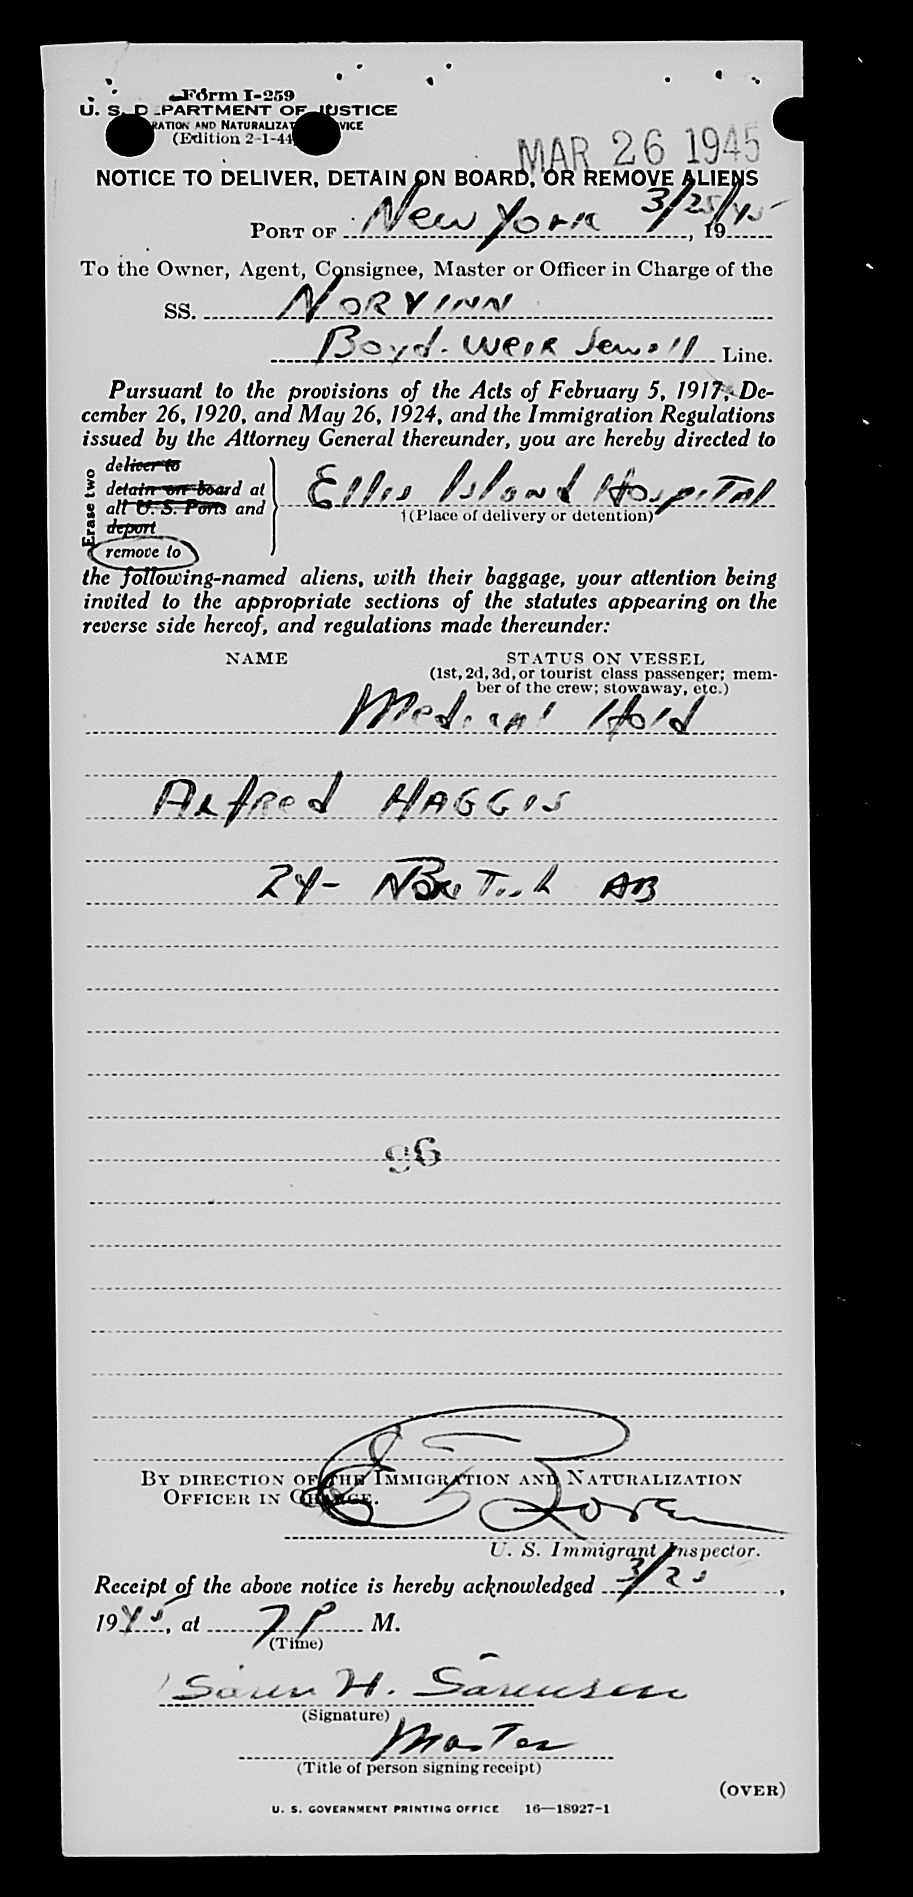 Form I-259
U. S. DEPARTMENT OF JUSTICE
RATION AND NATURALIZAT VICE
(Edition 2-1-44
MAR 26 1945
NOTICE TO DELIVER, DETAIN ON BOARD, OR REMOVE ALIENS
PORT OF New York 3/25/45, 19
To the Owner, Agent, Consignee, Master or Officer in Charge of the
SS. NORVINN
Boyd. Weir Sewell Line.
Pursuant to the provisions of the Acts of February 5, 1917, De-
cember 26, 1920, and May 26, 1924, and the Immigration Regulations
issued by the Attorney General thereunder, you are hereby directed to
Erase two
deliver to
detain on board at
all U. S. Ports and
deport
remove to
Ellis Island Hospital
†(Place of delivery or detention)
the following-named aliens, with their baggage, your attention being
invited to the appropriate sections of the statutes appearing on the
reverse side hereof, and regulations made thereunder:
NAME STATUS ON VESSEL
(1st, 2d, 3d, or tourist class passenger; mem-
ber of the crew; stowaway, etc.)
Medical Hold
Alfred HAGGIS
24- British AB
96
BY DIRECTION OF THE IMMIGRATION AND NATURALIZATION
OFFICER IN CHARGE.
U. S. Immigrant Inspector.
Receipt of the above notice is hereby acknowledged 3/25,
1945, at 7 P M.
(Time)
Søren H. Sørensen
(Signature)
Master
(Title of person signing receipt)
(OVER)
U. S. GOVERNMENT PRINTING OFFICE 16—18927-1